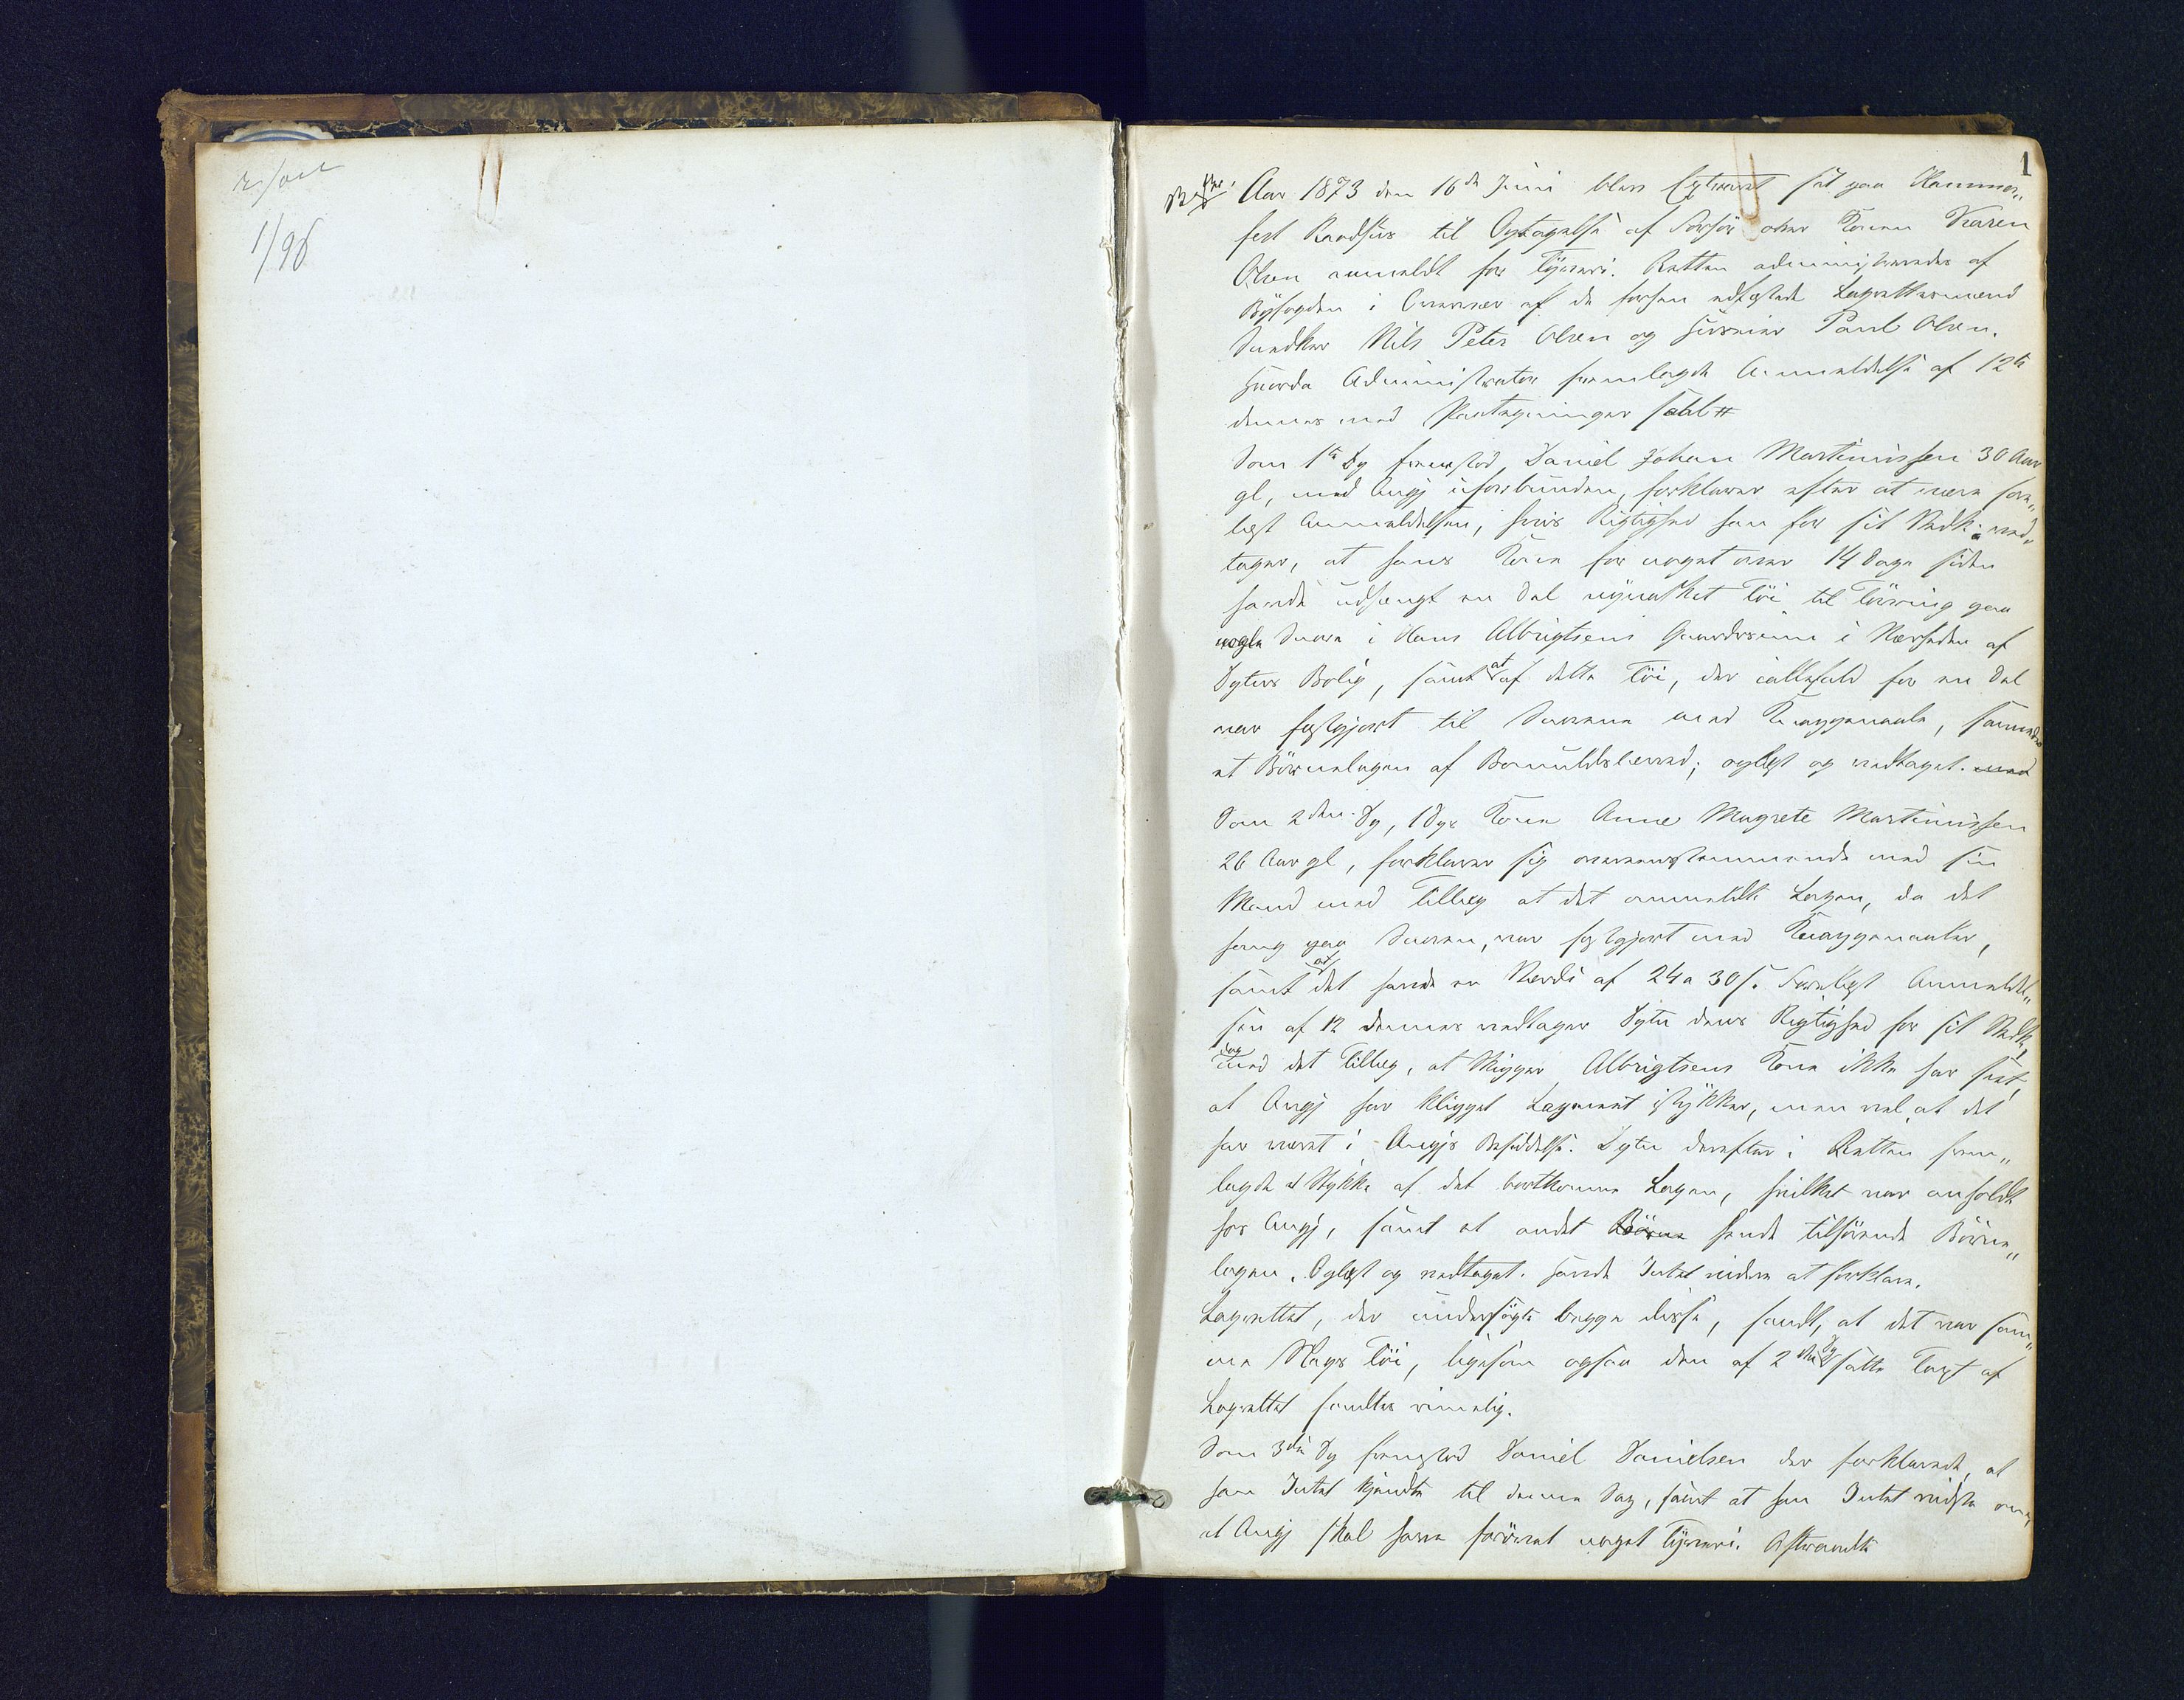 1/98
1
Aar 1873 den 16de Juni blev Extraret sat paa Hammer„
fest Raadhus til Optagelse af Forhør over Konen Karen
Olsen anmeldt for Tyveri. Retten administreredes af
Byfogden i Overvær af de forhen edfæstede Lagrettesmænd
Snedker Nils Peter Olsen og Huseier Paul Olsen.
Hvorda Administrator fremlagde Anmeldelse af 12te
dennes med Paategninger
Som 1ste Vg fremstod Daniel Johan Martinussen 30 Aar
gl, med Angj uforbunden, forklarer efter at være fore„
læst Anmeldelsen, hvis Rigtighed han for sit Vedk. ved„
tager, at hans Kone for noget over 14 Dage siden
havde udhængt en Del nyvasket Töi til Törring paa
nogle Snore i Hans Albrigtsens Gaardsrum i Nærheden af
Vgters Bolig, samt at af dette Töi, der iallefald for en Del
var fastgjort til Snorene med Knappenaale, savnedes
et Börnelagen af Bomuldslærred; oplæst og vedtaget.
Som 2den Vg, 1 Vgs Kone Anne Magrete Martinussen
26 Aar gl, forklarer sig overensstemmende med sin
Mand med Tillæg at det anmeldte Lagen, da det
hang paa Snoren, var fastgjort med Knappenaaler,
samt at det havde en Værdi af 24 a 30 s. Forelæst Anmeldel„
sen af 12 dennes vedtager Vgtn dens Rigtighed for sit Vedk,
dog med det Tillæg, at Skipper Albrigtsens Kone ikke har seet,
at Angj har klippet Lagenet istykker, men vel, at det
har været i Angjs Besiddelse. Vgtn derefter i Retten frem„
lagde et Stykke af det bortkomne Lagen, hvilket var anholdt
hos Angj, samt et andet Börne hende tilhörende Börne„
lagen. Oplæst og vedtaget. Havde Intet videre at forklare.
Lagrettet, der undersögte begge disse, fandt, at det var sam„
me Slags Töi, ligesom ogsaa den af 2den Vg satte Taxt af
Lagrettet fandtes rimelig.
Som 3die Vg fremstod Daniel Danielsen der forklarede, at
han Intet kjendte til denne Sag, samt at han Intet vidste om,
at Angj skal have forövet noget Tyveri. Aftraadte